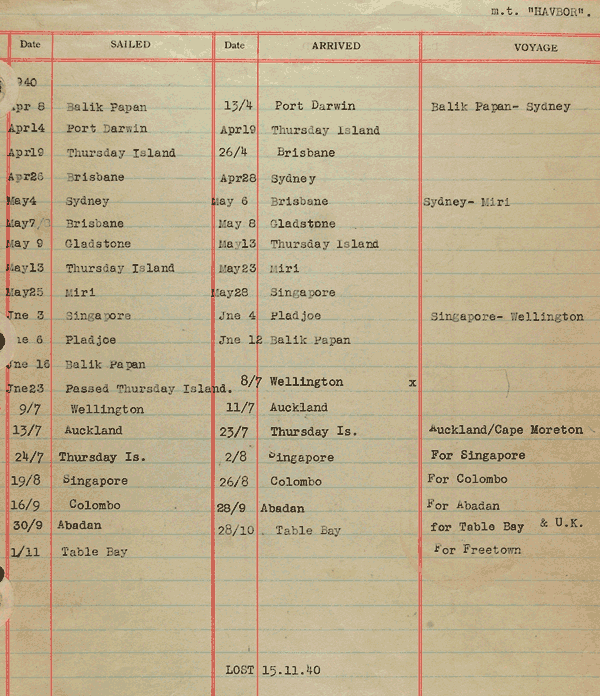 m.t. "HAVBOR".
Date SAILED Date ARRIVED VOYAGE
940
Apr 8 Balik Papan 13/4 Port Darwin Balik Papan- Sydney
Apr14 Port Darwin Apr19 Thursday Island
Apr19 Thursday Island 26/4 Brisbane
Apr26 Brisbane Apr28 Sydney
May4 Sydney May 6 Brisbane Sydney- Miri
May7 Brisbane May 8 Gladstone
May 9 Gladstone May13 Thursday Island
May13 Thursday Island May23 Miri
May25 Miri May28 Singapore
Jne 3 Singapore Jne 4 Pladjoe Singapore- Wellington
ne 6 Pladjoe Jne 12 Balik Papan
Jne 16 Balik Papan
Jne23 Passed Thursday Island. 8/7 Wellington x
9/7 Wellington 11/7 Auckland
13/7 Auckland 23/7 Thursday Is. Auckland/Cape Moreton
24/7 Thursday Is. 2/8 Singapore For Singapore
19/8 Singapore 26/8 Colombo For Colombo
16/9 Colombo 28/9 Abadan For Abadan
30/9 Abadan 28/10 . Table Bay for Table Bay & U.K.
1/11 Table Bay For Freetown
LOST 15.11.40